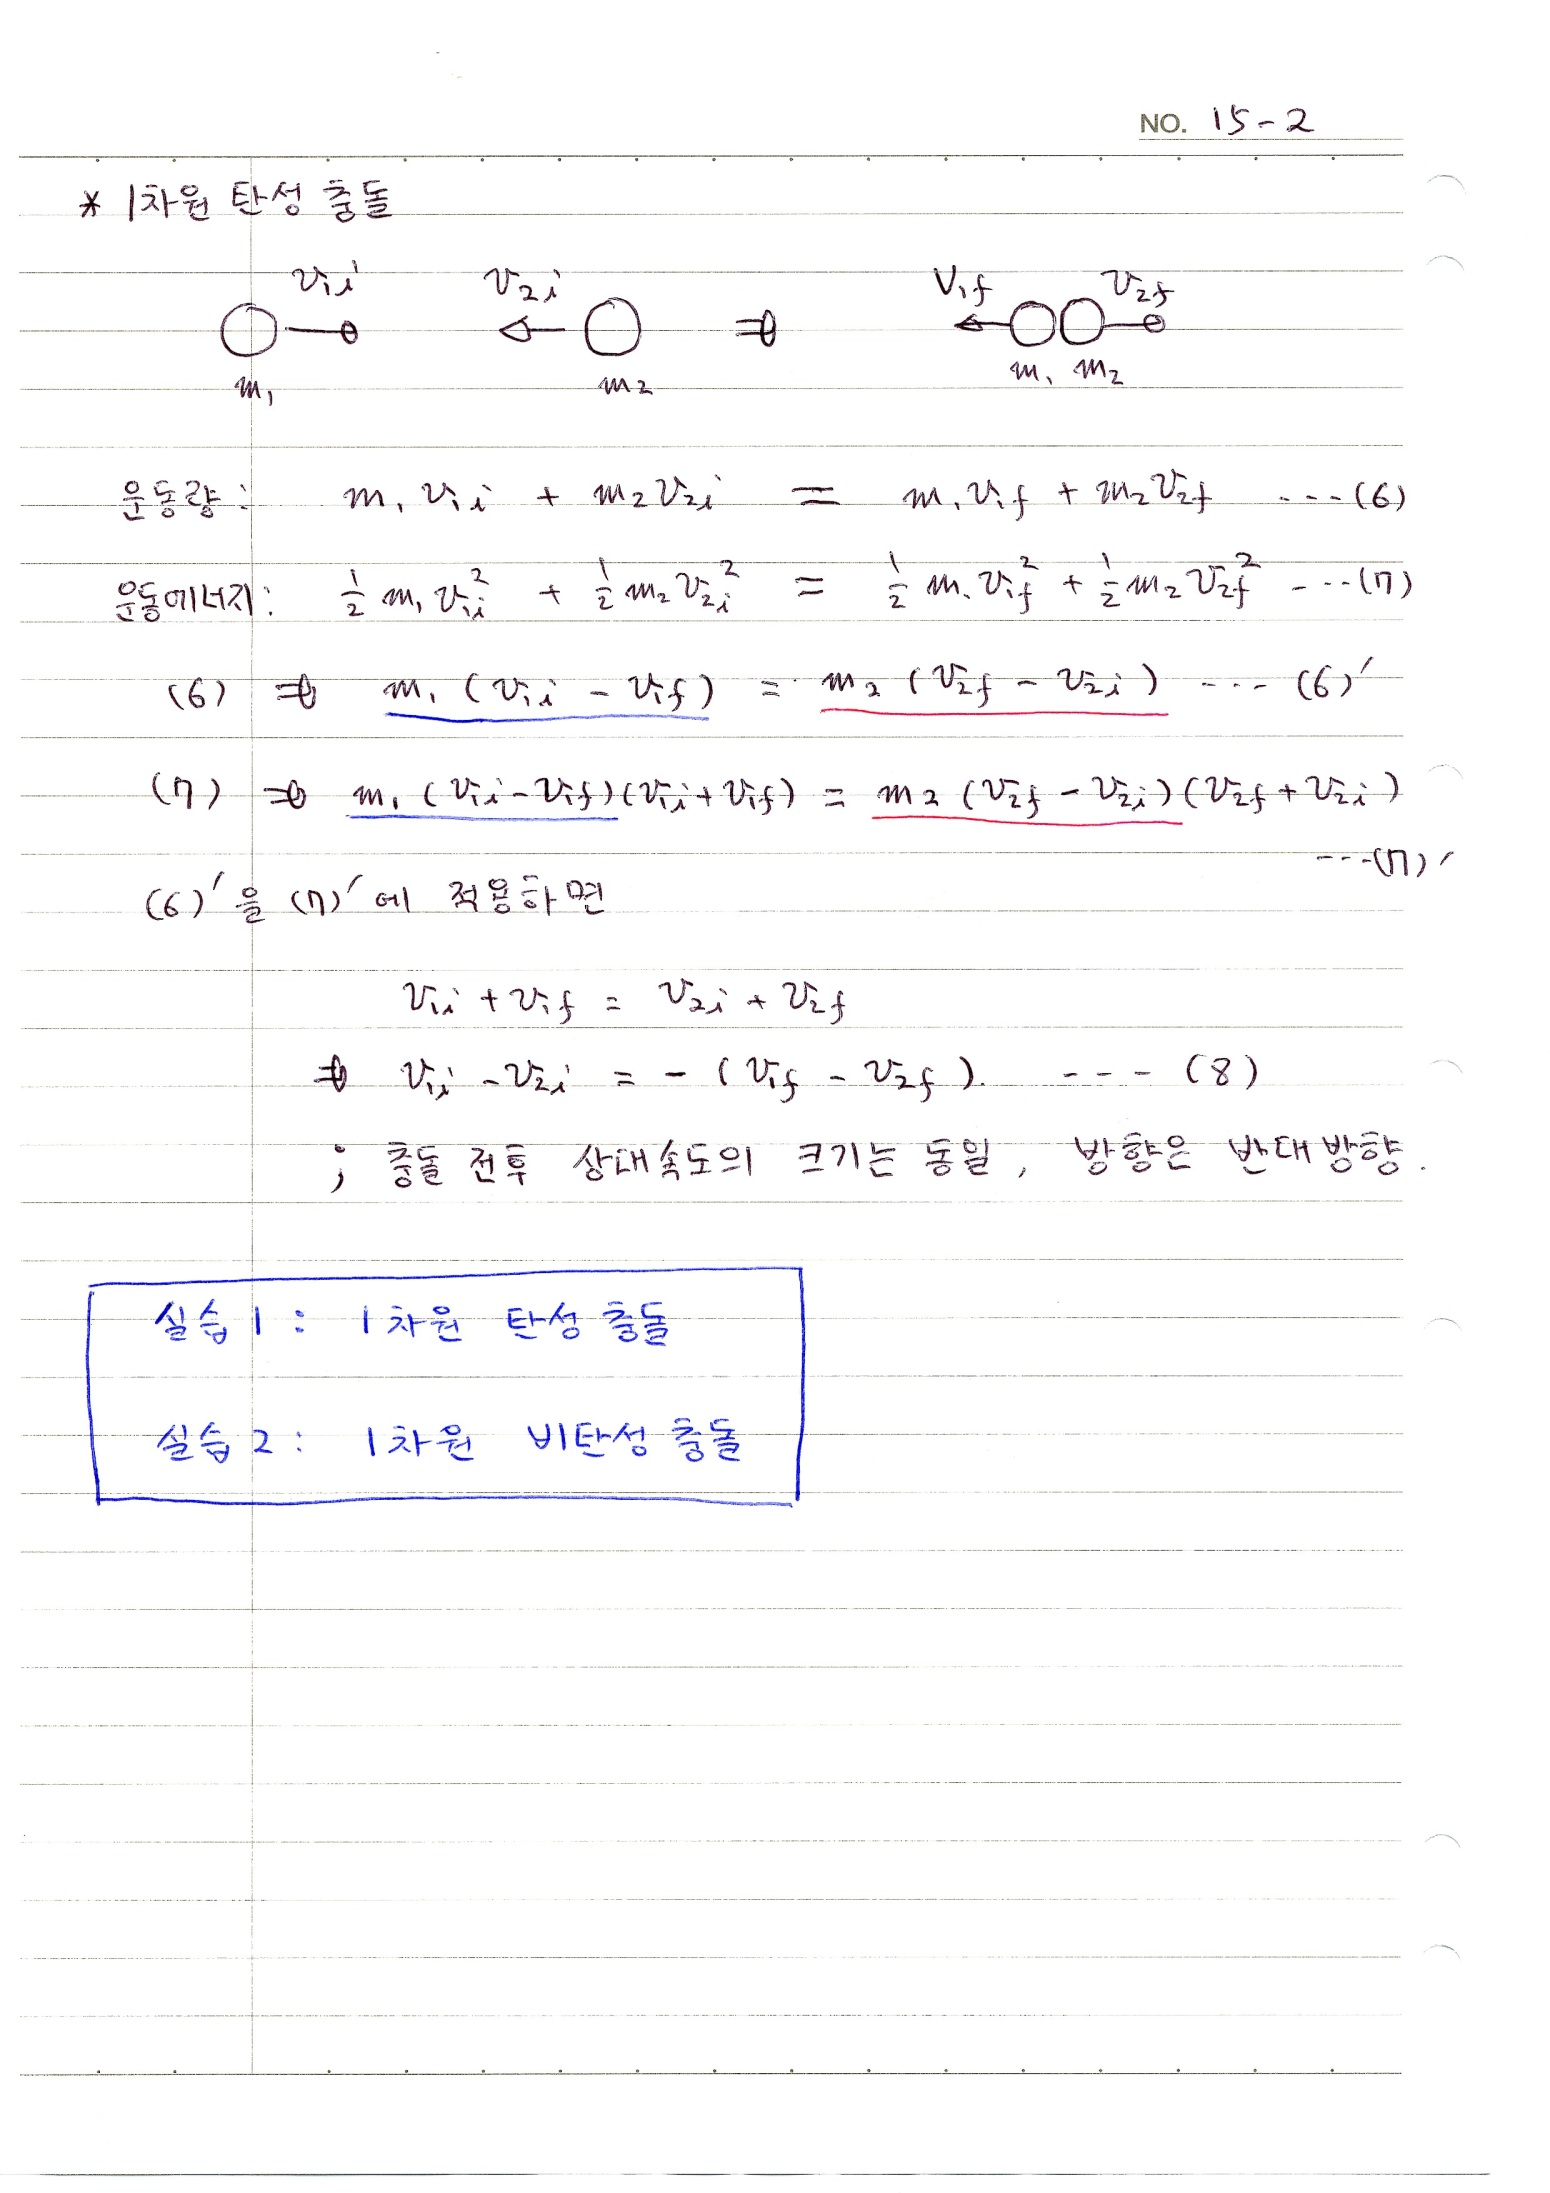 NO. 15-2
* 1차원 탄성 충돌
v₁ᵢ v₂ᵢ v₁f v₂f
m₁ m₂ m₁ m₂
운동량: m₁v₁ᵢ + m₂v₂ᵢ = m₁v₁f + m₂v₂f ---(6)
운동에너지: ½m₁v₁ᵢ² + ½m₂v₂ᵢ² = ½m₁v₁f² + ½m₂v₂f² ---(7)
(6) ⇒ m₁(v₁ᵢ - v₁f) = m₂(v₂f - v₂ᵢ) --- (6)′
(7) ⇒ m₁(v₁ᵢ - v₁f)(v₁ᵢ + v₁f) = m₂(v₂f - v₂ᵢ)(v₂f + v₂ᵢ)
---(7)′
(6)′을 (7)′에 적용하면
v₁ᵢ + v₁f = v₂ᵢ + v₂f
⇒ v₁ᵢ - v₂ᵢ = -(v₁f - v₂f). --- (8)
; 충돌 전후 상대속도의 크기는 동일, 방향은 반대방향.
실습 1: 1차원 탄성 충돌
실습 2: 1차원 비탄성 충돌